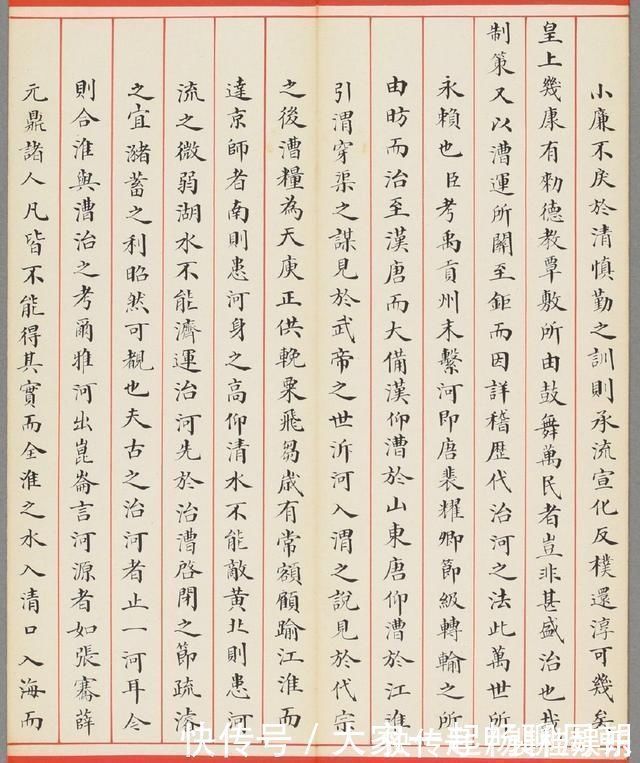 小廉不戾於清慎勤之訓則承流宣化反樸還淳可幾矣
皇上幾康有勑德教覃敷所由鼓舞萬民者豈非甚盛治也哉
制策又以漕運所關至鉅而因詳稽歷代治河之法此萬世所
永賴也臣考禹貢州末繫河即唐裴耀卿節級轉輸之所
由昉而治至漢唐而大備漢仰漕於山東唐仰漕於江淮
引渭穿渠之謀見於武帝之世泝河入渭之說見於代宗
之後漕糧為天庾正供輓粟飛芻歲有常額顧踰江淮而
達京師者南則患河身之高仰清水不能敵黃北則患河
流之微弱湖水不能濟運治河先於治漕啓閉之節疏濬
之宜瀦蓄之利昭然可覩也夫古之治河者止一河耳今
則合淮與漕治之考爾雅河出崑崙言河源者如張騫薛
元鼎諸人凡皆不能得其實而全淮之水入清口入海而
快传号 / 大家